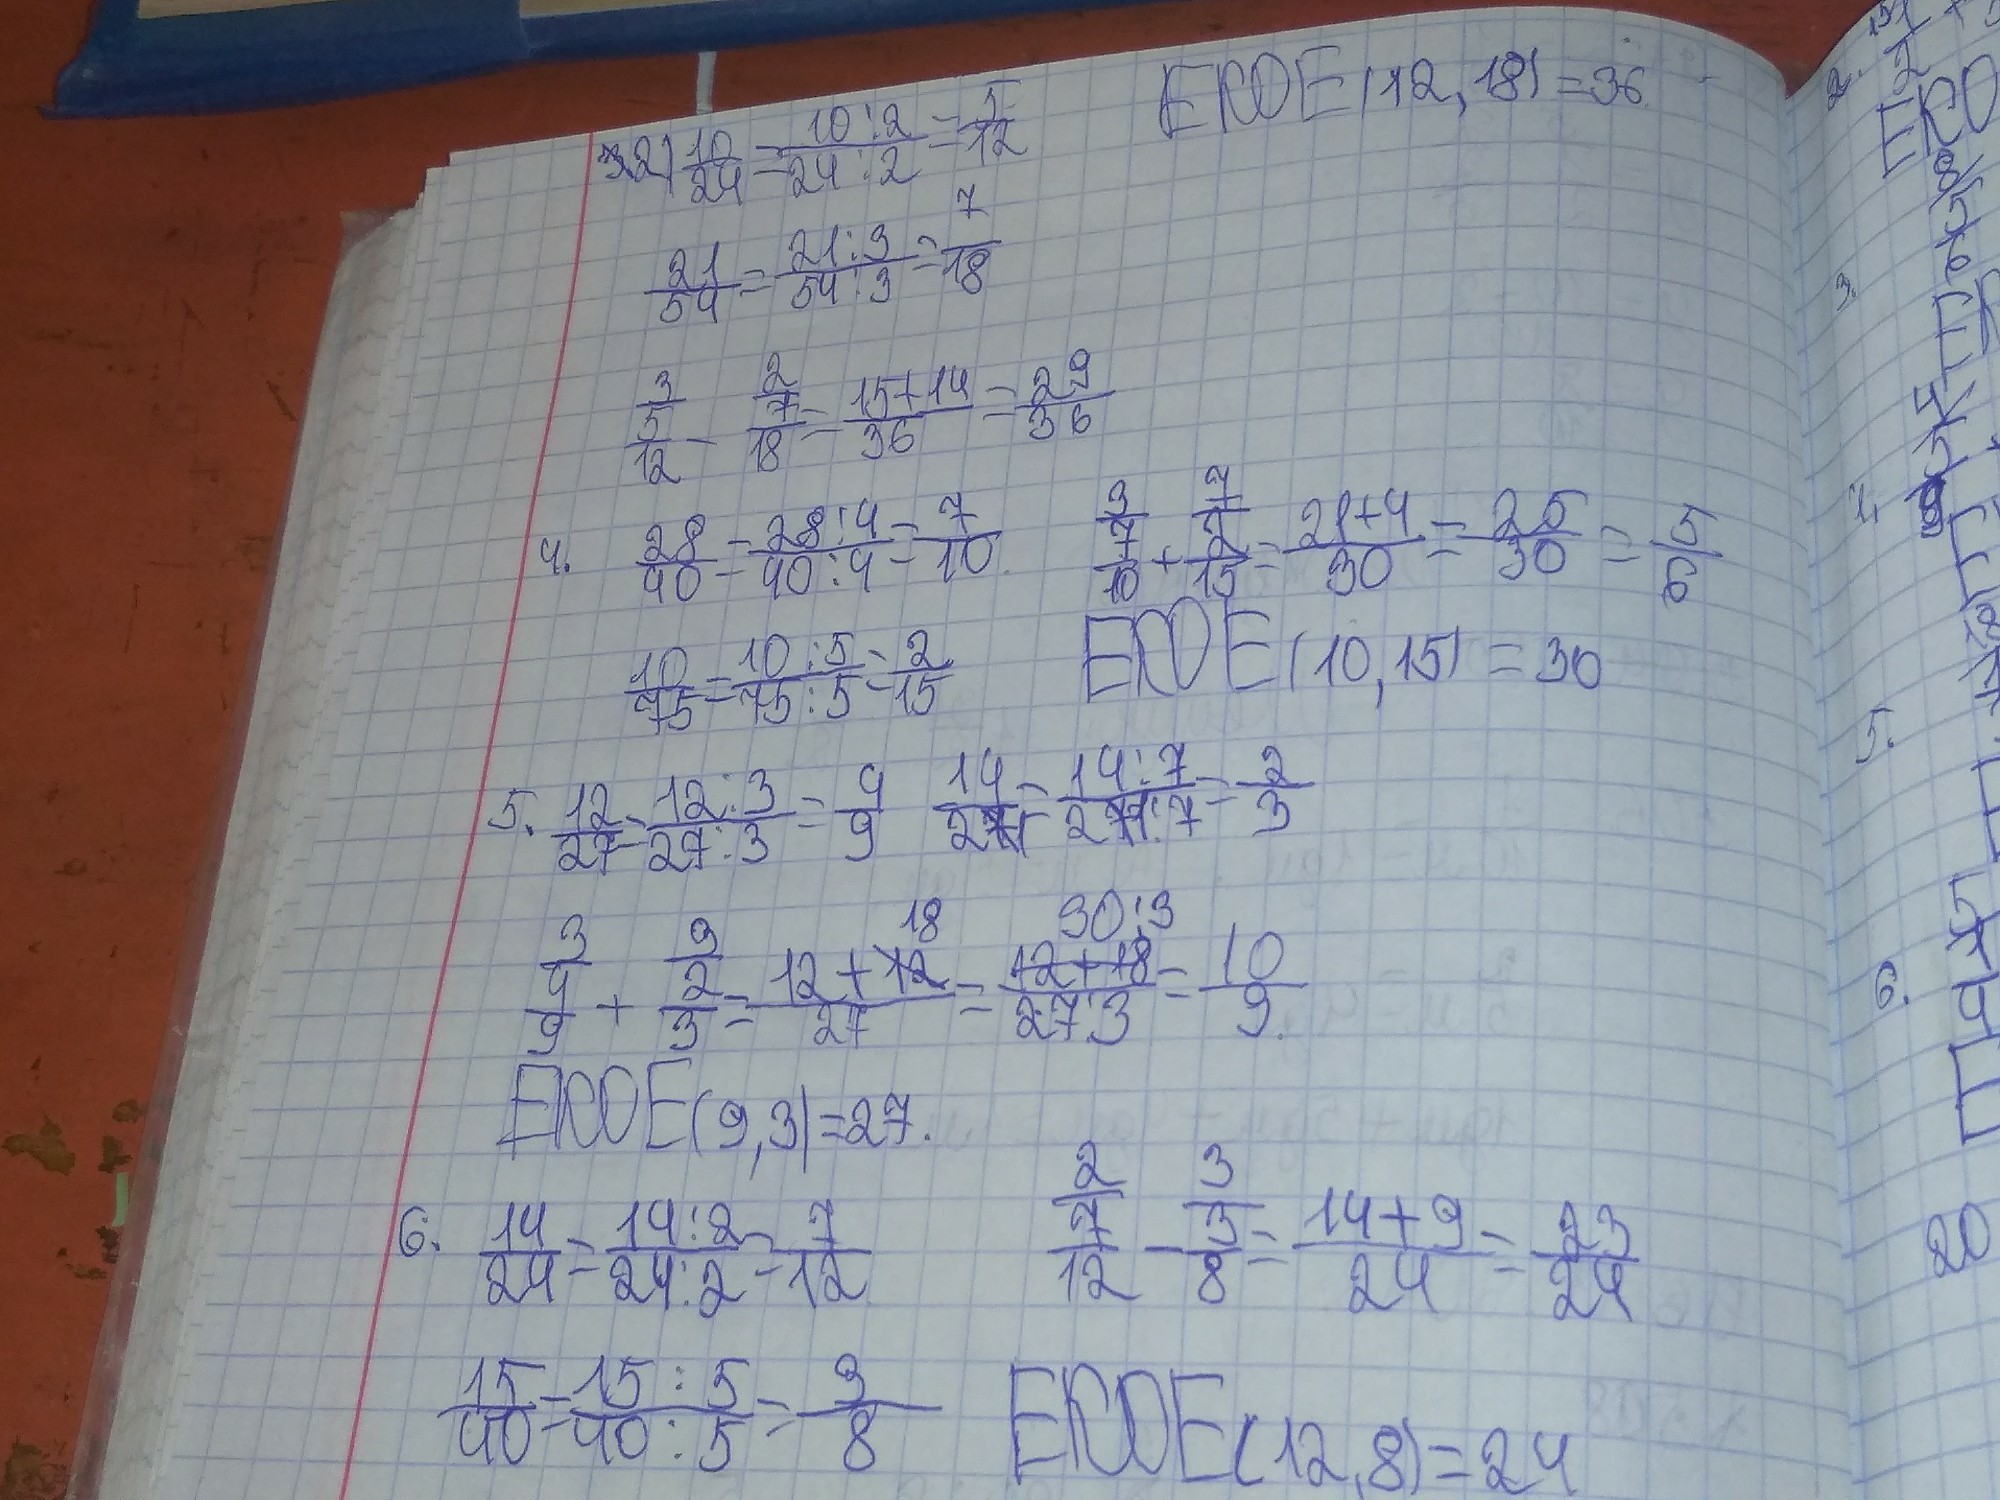 2) 10/24 = 10:2/24:2 = 5/12 EKOE(12,18)=36
21/54 = 21:3/54:3 = 7/18
3 2
5/12 - 7/18 = 15+14/36 = 29/36
4. 28/40 = 28:4/40:4 = 7/10 3 7
7/10 + 2/15 = 21+4/30 = 25/30 = 5/6
10/75 = 10:5/75:5 = 2/15 EKOE(10,15)=30
5. 12/27 = 12:3/27:3 = 4/9 14/21 = 14:7/21:7 = 2/3
3 9 18 30:3
4/9 + 2/3 = 12+12/27 = 12+18/27:3 = 10/9
EKOE(9,3)=27.
6. 14/24 = 14:2/24:2 = 7/12 2 3
7/12 - 3/8 = 14+9/24 = 23/24
15/40 = 15:5/40:5 = 3/8 EKOE(12,8)=24
2.
3.
5.
6.
20